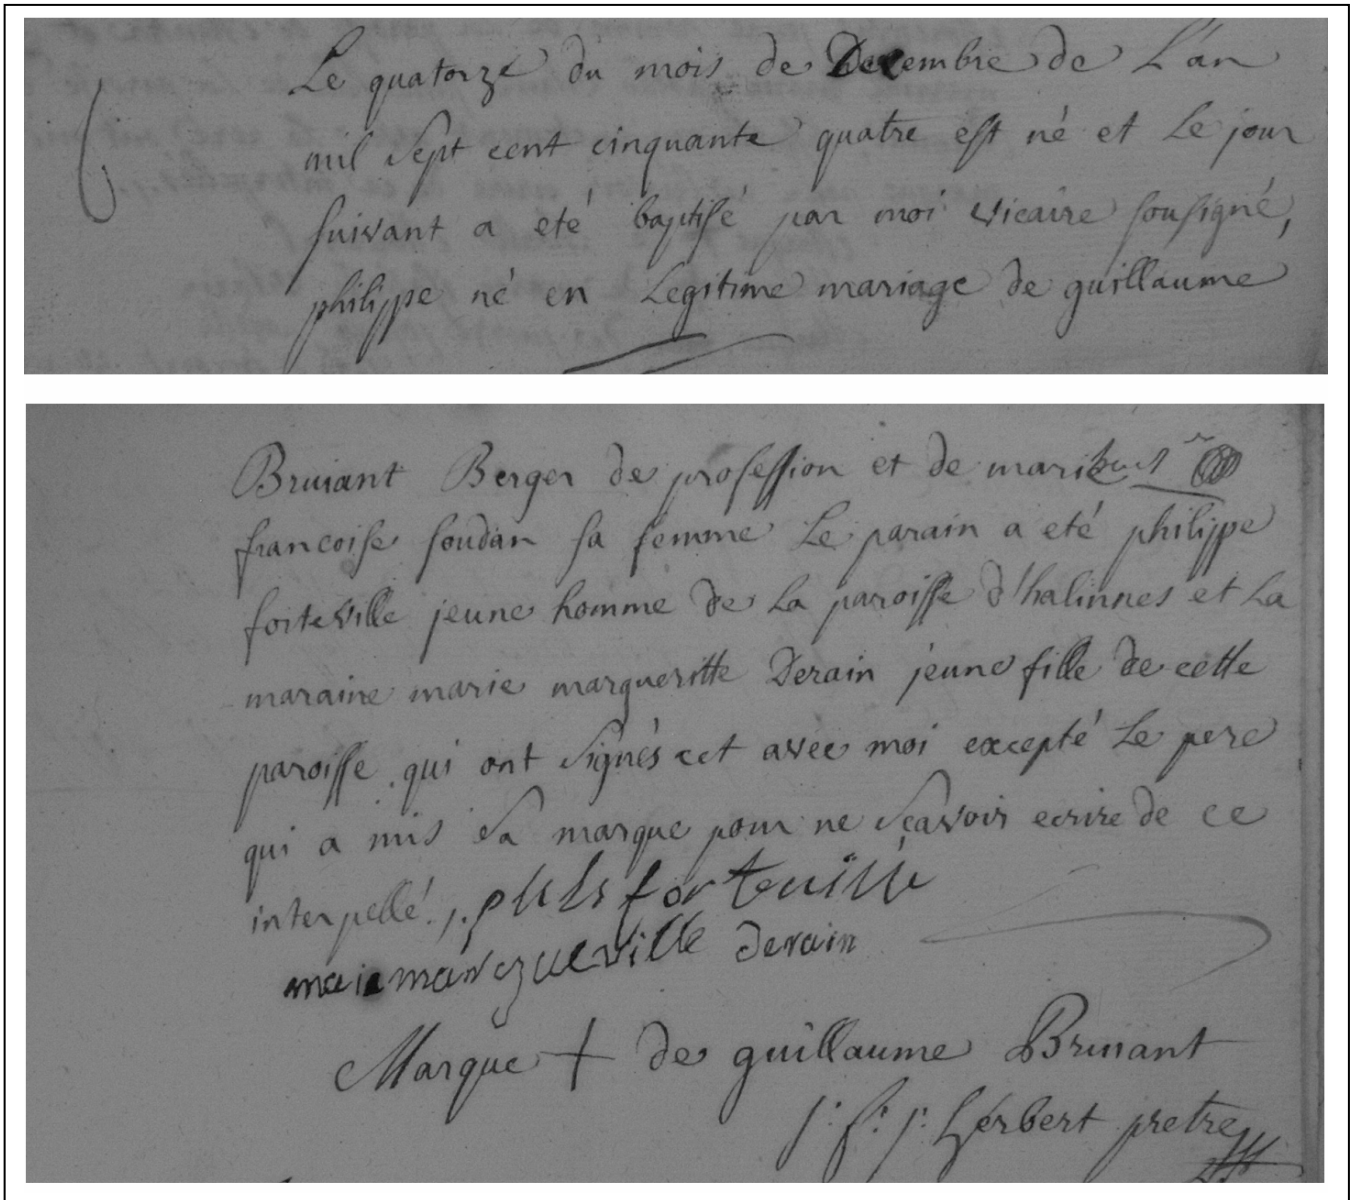 Le quatorze du mois de Decembre de L'an
mil sept cent cinquante quatre est né et le jour
suivant a eté baptisé par moi vicaire sousigné,
philippe né en Legitime mariage de guillaume
Bruiant Berger de profession et de
francoise soudan sa femme Le parain a eté philippe
forteville jeune homme de La paroisse d'halinnes et La
maraine marie margueritte Derain jeune fille de cette
paroisse qui ont signés cet avec moi excepté Le pere
qui a mis sa marque pour ne sçavoir ecrire de ce
interpellé
derain
Marque + de guillaume Bruiant
j: f: j: herbert pretre